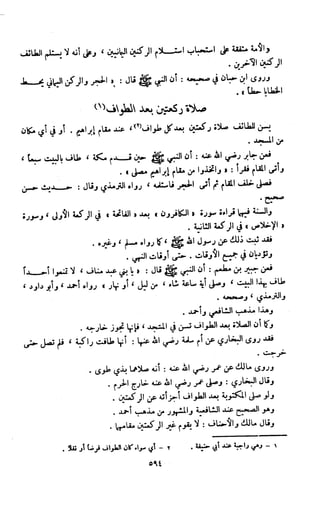 والأمة متفقة على استحباب استلام الركنين اليمانيين ، وعلى أنه لا يستلم الطائف
الركنين الآخرين .
وروى ابن حبان في صحيحه : أن النبي ﷺ قال : « الحجر والركن اليماني يحط
الخطايا حطاً » .
صلاة ركعتين بعد الطواف (١)
يسن للطائف صلاة ركعتين بعد كل طواف (٢) ، عند مقام إبراهيم . أو في أي مكان
من المسجد .
فعن جابر رضي الله عنه : أن النبي ﷺ حين قدم مكة ، طاف بالبيت سبعاً ،
وأتى المقام فقرأ : « واتخذوا من مقام إبراهيم مصلى » .
فصلى خلف المقام ثم أتى الحجر فاستلمه ، رواه الترمذي وقال : حديث حسن
صحيح .
والسنة فيها قراءة سورة « الكافرون » بعد « الفاتحة » في الركعة الأولى ، وسورة
« الإخلاص » في الركعة الثانية .
فقد ثبت ذلك عن رسول الله ﷺ ، كما رواه مسلم ، وغيره .
وتؤديان في جميع الأوقات . حتى أوقات النهي .
فعن جبير بن مطعم : أن النبي ﷺ قال : « يا بني عبد مناف ، لا تمنعوا أحداً
طاف بهذا البيت ، وصلى أية ساعة شاء ، من ليل ، أو نهار » رواه أحمد ، وأبو داود ،
والترمذي ، وصححه .
وهذا مذهب الشافعي وأحمد .
وكما أن الصلاة بعد الطواف تسن في المسجد ، فإنها تجوز خارجه .
فقد روى البخاري عن أم سلمة رضي الله عنها : أنها طافت راكبة ، فلم تصل حتى
خرجت .
وروى مالك عن عمر رضي الله عنه : أنه صلاهما بذي طوى .
وقال البخاري : وصلى عمر رضي الله عنه خارج الحرم .
ولو صلى المكتوبة بعد الطواف أجزأته عن الركعتين .
وهو الصحيح عند الشافعية والمشهور من مذهب أحمد .
وقال مالك والأحناف : لا يقوم غير الركعتين مقامها .
١ - وهي واجبة عند أبي حنيفة . ٢ - أي سواء كان الطواف فرضاً أو نفلاً .
٥٩٤